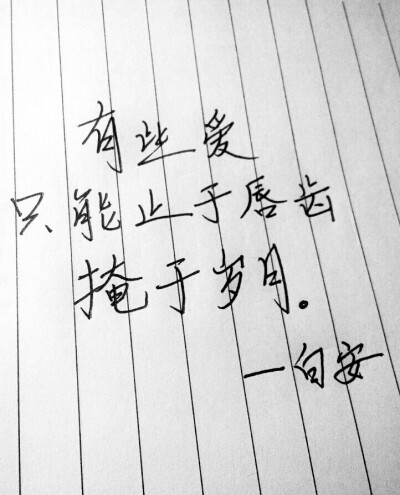 有些爱
只能止于唇齿
掩于岁月。
—白安